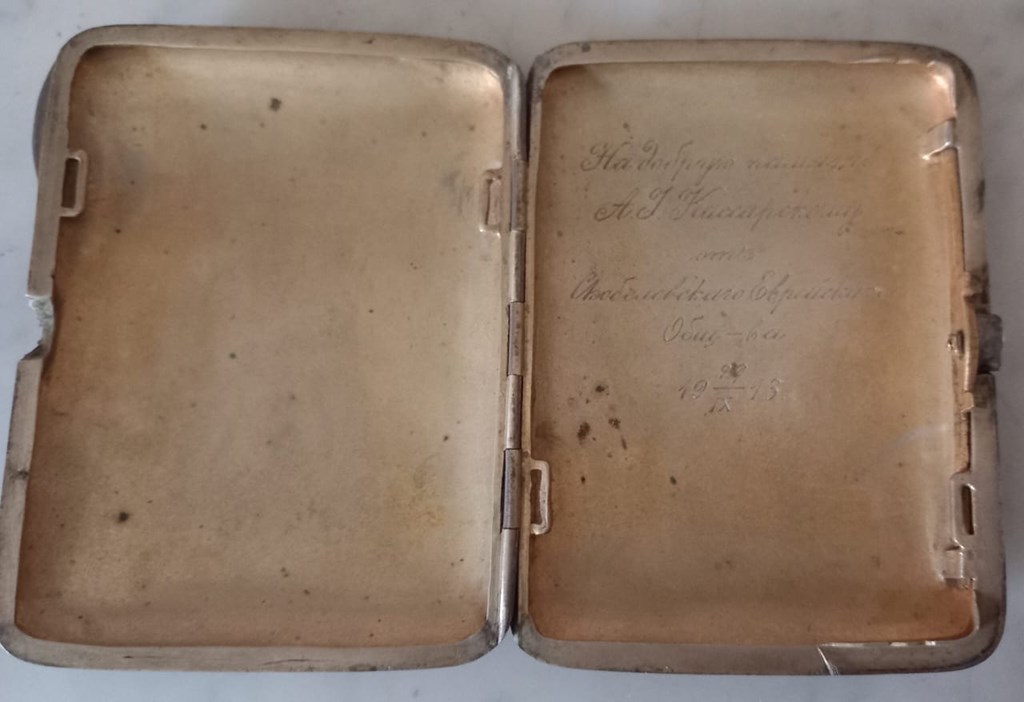 На добрую память
А. І. Кассарскому
отъ
Скобелевскаго Еврейскаго
Общ-ва
19 IX 15